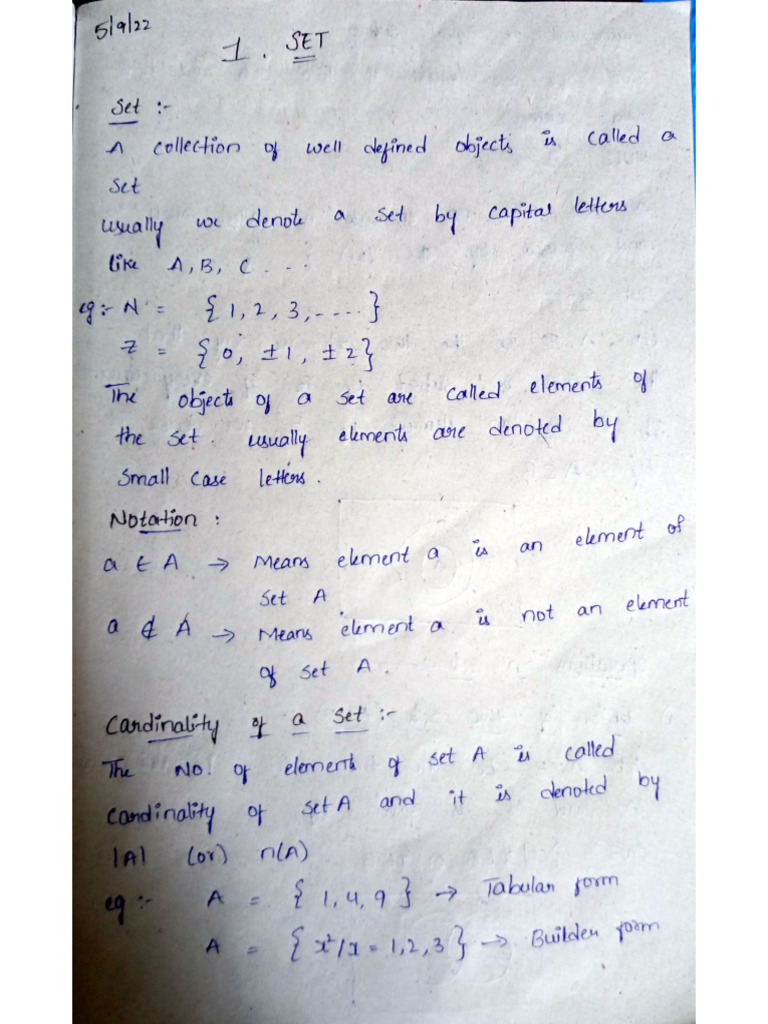 5/9/22
1. SET
Set :-
A collection of well defined objects is called a
set
usually we denote a set by capital letters
like A, B, C ...
eg :- N = { 1, 2, 3, ..... }
Z = { 0, ±1, ±2 }
The objects of a set are called elements of
the set. usually elements are denoted by
small case letters.
Notation :
a ∈ A → Means element a is an element of
set A.
a ∉ A → Means element a is not an element
of set A.
Cardinality of a set :-
The No. of elements of set A is called
Cardinality of set A and it is denoted by
|A| (or) n(A)
eg :- A = { 1, 4, 9 } → Tabular form
A = { x²/x = 1, 2, 3 } → Builder form